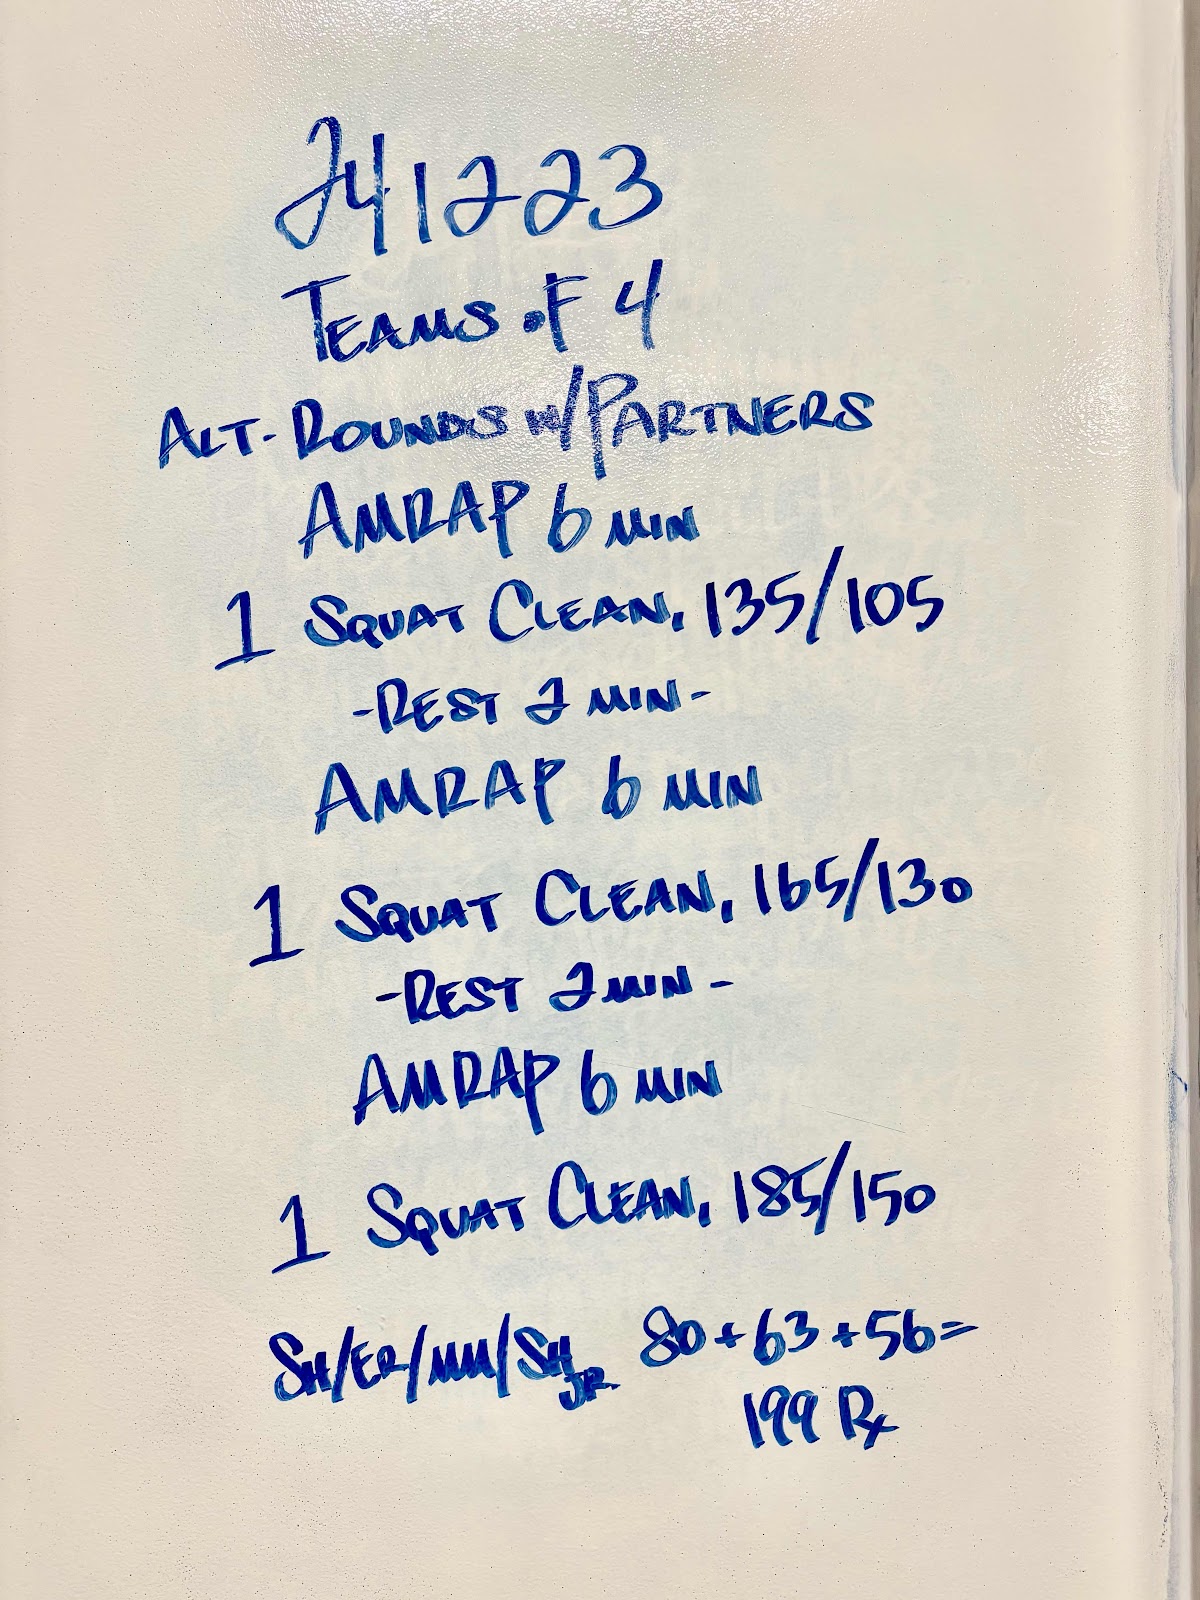 241223
TEAMS OF 4
ALT-ROUNDS W/PARTNERS
AMRAP 6 MIN
1 SQUAT CLEAN, 135/105
-REST 2 MIN-
AMRAP 6 MIN
1 SQUAT CLEAN, 165/130
-REST 2 MIN-
AMRAP 6 MIN
1 SQUAT CLEAN, 185/150
SH/ER/MM/SH JR. 80+63+56=
199 Rx